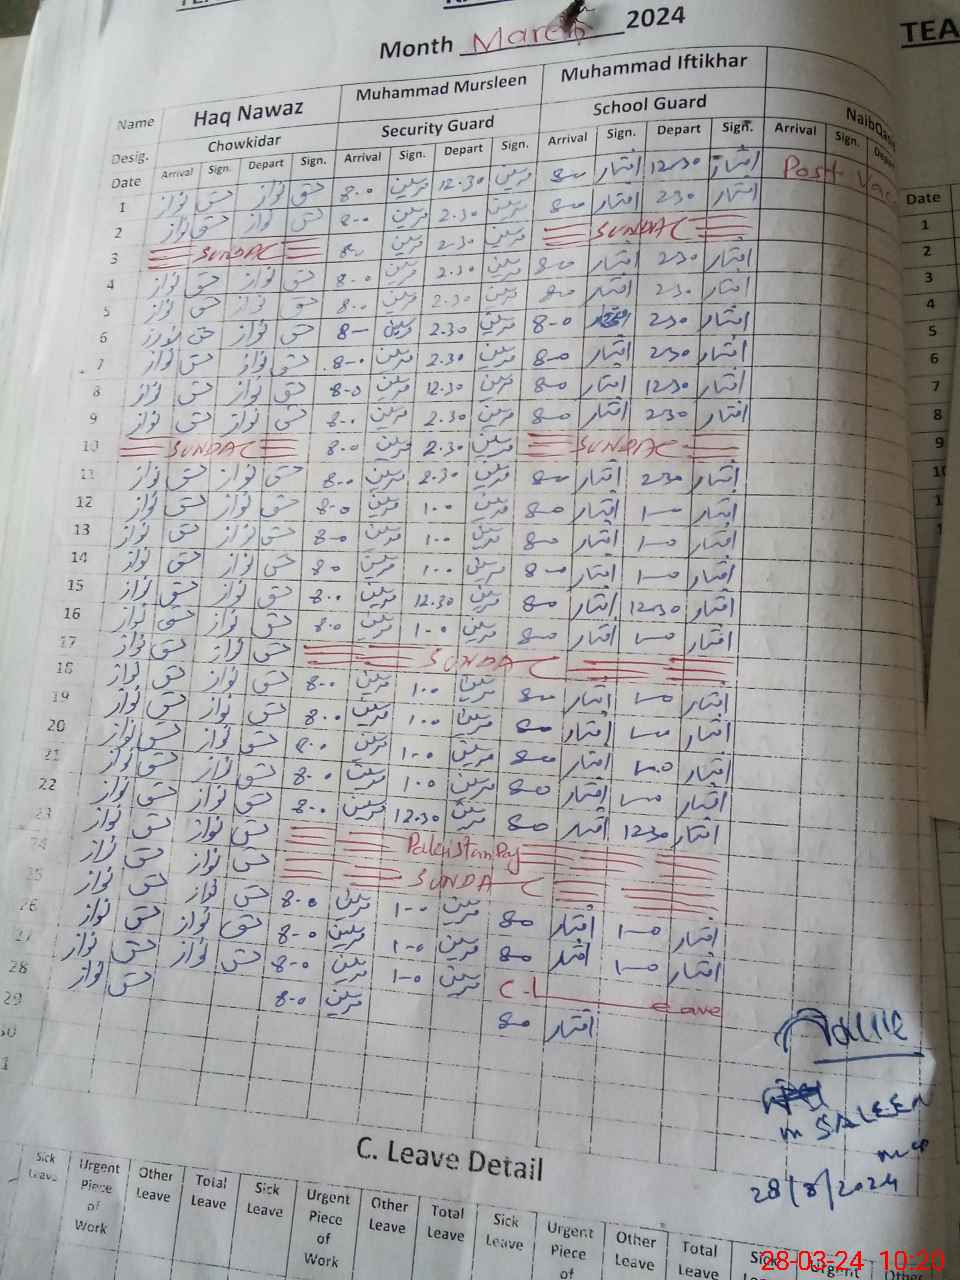 Month March 2024
TEA
Name Haq Nawaz Muhammad Mursleen Muhammad Iftikhar
Desig. Chowkidar Security Guard School Guard
Date Arrival Sign. Depart Sign. Arrival Sign. Depart Sign. Arrival Sign. Depart Sign. Arrival Sign.
1 نواز حق نواز حق 8-0 مرسلین 12.30 مرسلین 8-0 افتخار 12-30 افتخار Post
2 نواز حق نواز حق 8-0 مرسلین 2.30 مرسلین 8-0 افتخار 2-30 افتخار
3 SUNDAY 8-0 مرسلین 2.30 مرسلین SUNDAY
4 نواز حق نواز حق 8-0 مرسلین 2.30 مرسلین 8-0 افتخار 2-30 افتخار
5 نواز حق نواز حق 8-0 مرسلین 2.30 مرسلین 8-0 افتخار 2-30 افتخار
6 حق نواز حق 8-0 مرسلین 2.30 مرسلین 8-0 2-30 افتخار
7 نواز حق نواز حق 8-0 مرسلین 2.30 مرسلین 8-0 افتخار 2-30 افتخار
8 نواز حق نواز حق 8-0 مرسلین 12.30 مرسلین 8-0 افتخار 12-30 افتخار
9 نواز حق نواز حق 8-0 مرسلین 2.30 مرسلین 8-0 افتخار 2-30 افتخار
10 SUNDAY 8-0 مرسلین 2.30 مرسلین SUNDAY
11 نواز حق نواز حق 8-0 مرسلین 2.30 مرسلین 8-0 افتخار 2-30 افتخار
12 نواز حق نواز حق 8-0 مرسلین 1-0 مرسلین 8-0 افتخار 1-0 افتخار
13 نواز حق نواز حق 8-0 مرسلین 1-0 مرسلین 8-0 افتخار 1-0 افتخار
14 نواز حق نواز حق 8-0 مرسلین 1-0 مرسلین 8-0 افتخار 1-0 افتخار
15 نواز حق نواز حق 8-0 مرسلین 12.30 مرسلین 8-0 افتخار 12-30 افتخار
16 نواز حق نواز حق 8-0 مرسلین 1-0 مرسلین 8-0 افتخار 1-0 افتخار
17 نواز حق نواز حق SUNDAY
18 نواز حق نواز حق 8-0 مرسلین 1-0 مرسلین 8-0 افتخار 1-0 افتخار
19 نواز حق نواز حق 8-0 مرسلین 1-0 مرسلین 8-0 افتخار 1-0 افتخار
20 نواز حق نواز حق 8-0 مرسلین 1-0 مرسلین 8-0 افتخار 1-0 افتخار
21 نواز حق نواز حق 8-0 مرسلین 1-0 مرسلین 8-0 افتخار 1-0 افتخار
22 نواز حق نواز حق 8-0 مرسلین 12.30 مرسلین 8-0 افتخار 12-30 افتخار
23 نواز حق نواز حق Pakistan Day
24 نواز حق نواز حق SUNDAY
25 نواز حق نواز حق 8-0 مرسلین 1-0 مرسلین 8-0 افتخار 1-0 افتخار
26 نواز حق نواز حق 8-0 مرسلین 1-0 مرسلین 8-0 افتخار 1-0 افتخار
27 نواز حق نواز حق 8-0 مرسلین 1-0 مرسلین C-Leave
28 نواز حق 8-0 مرسلین 8-0 افتخار
29
30
M SALEEM
28/8/2024
C. Leave Detail
Sick Leave Urgent Piece of Work Other Leave Total Leave Sick Leave Urgent Piece of Work Other Leave Total Leave Sick Leave Urgent Piece of Other Leave Total Leave
Date
1
2
3
4
5
6
7
8
9
28-03-24 10:20